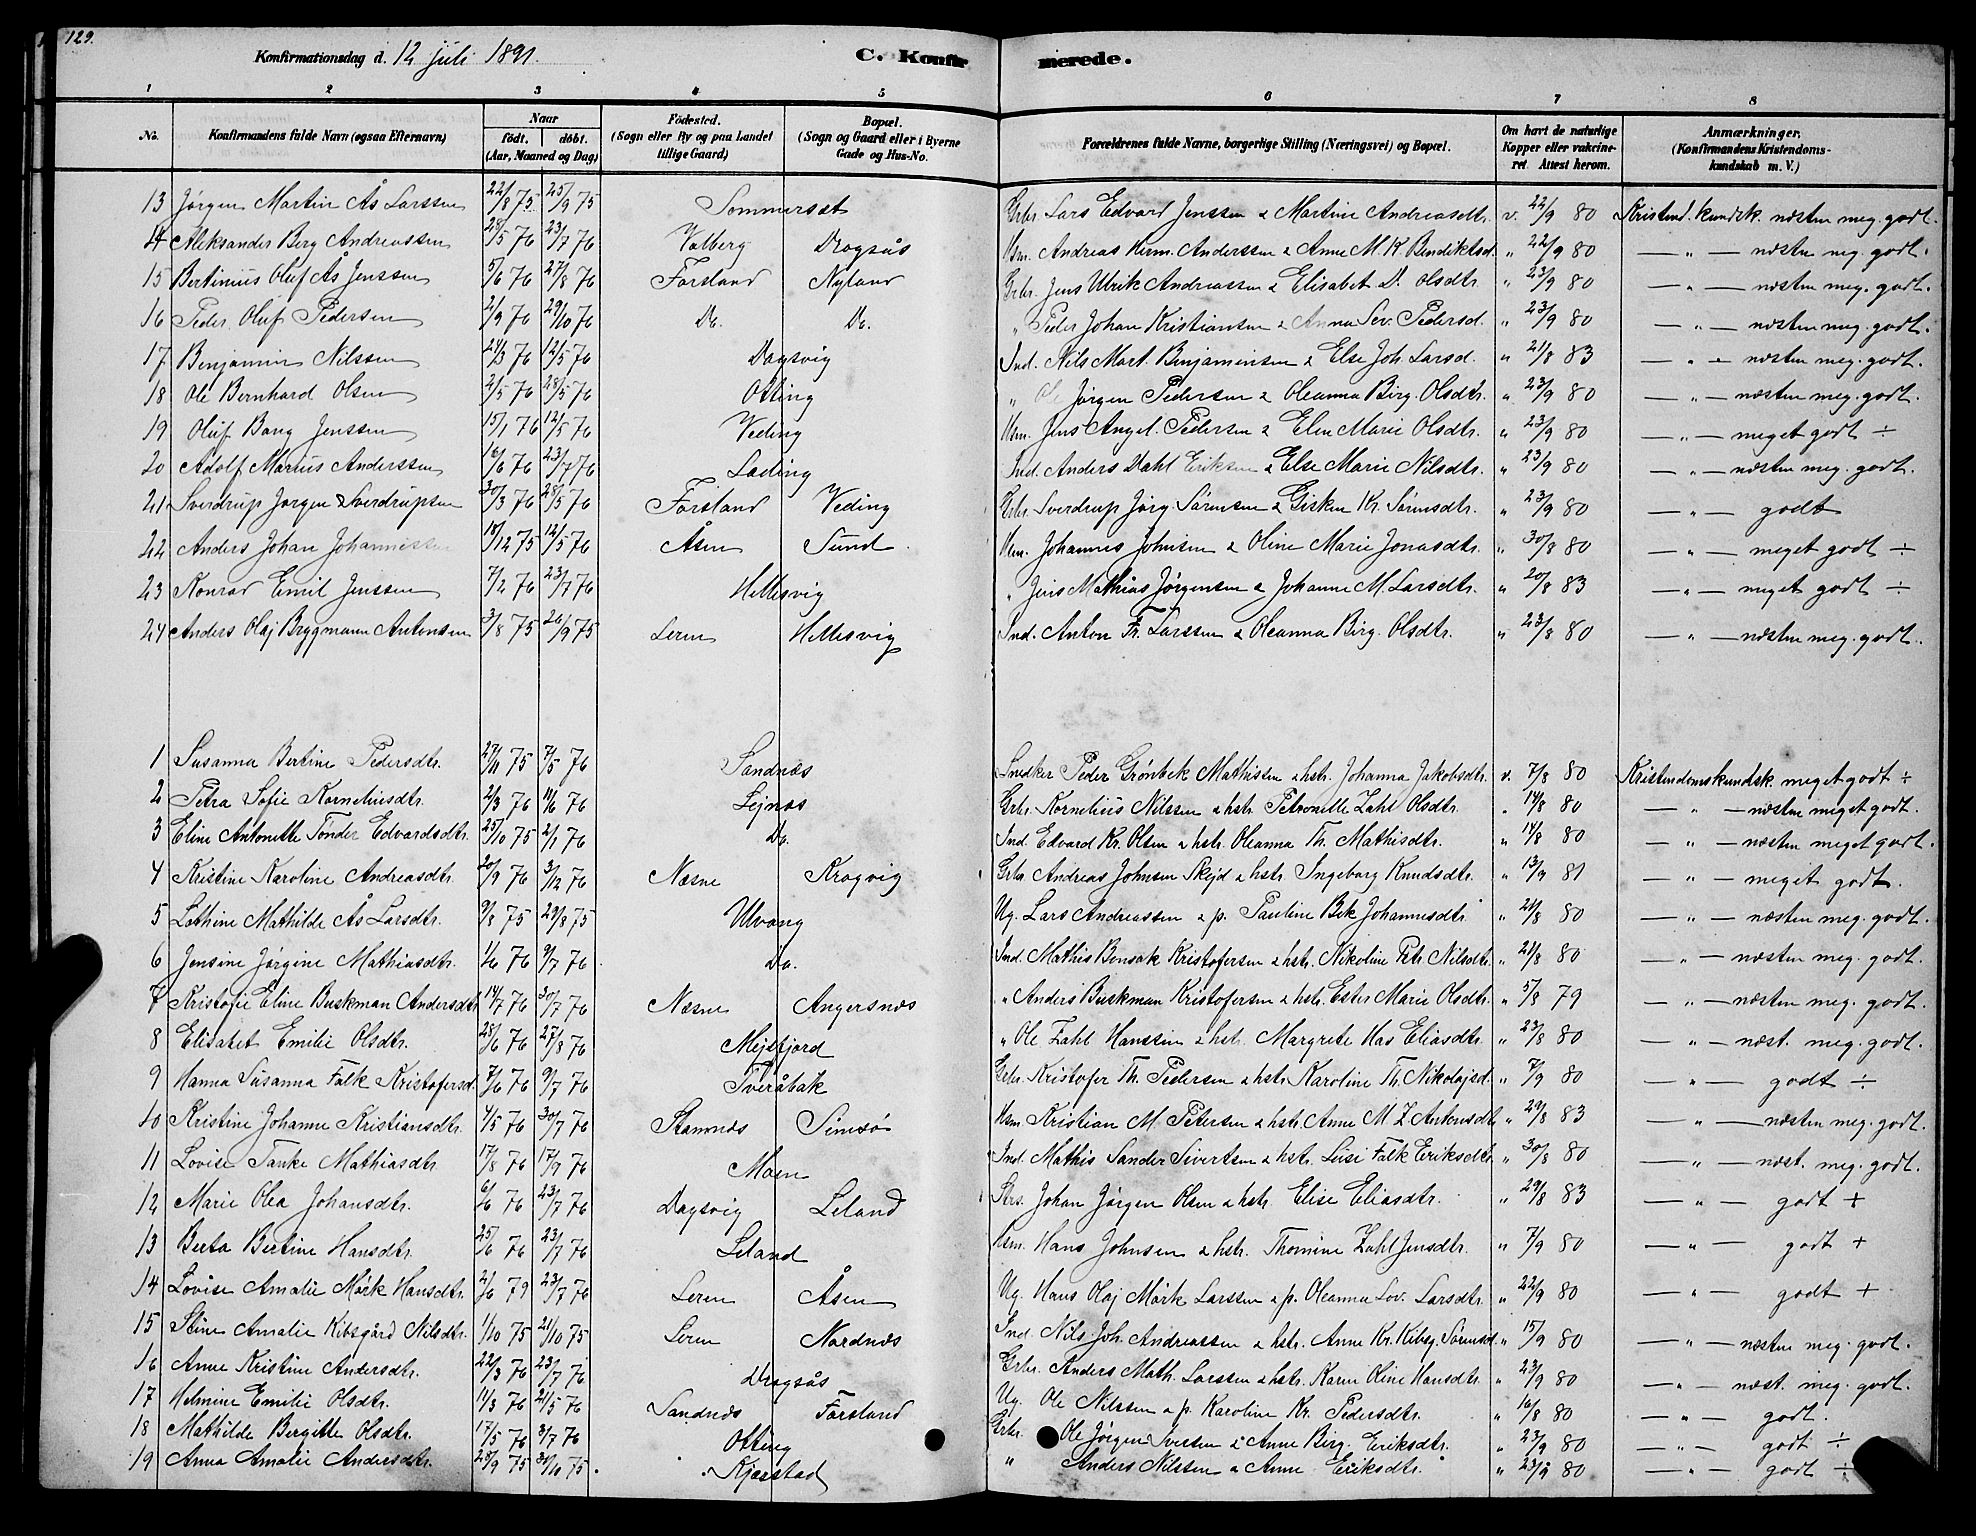 129.
Konfirmationsdag d. 12 juli 1891. C. Konfirmerede.
1 2 3 4 5 6 7 8
No. Konfirmandens fulde Navn (ogsaa Efternavn) Naar født. døbt. (Aar, Maaned og Dag) Fødested. (Sogn eller By og paa Landet tillige Gaard) Bopæl. (Sogn og Gaard eller i Byerne Gade og Hus-No. Forældrenes fulde Navne, borgerlige Stilling (Næringsvei) og Bopæl. Om havt de naturlige Kopper eller vakcineret. Attest herom. Anmærkninger. (Konfirmandens Kristendomskundskab m. V.)
13 Jørgen Martin Ås Larssen 22/8 75 25/9 75 Sommerset Grbr. Lars Edvard Jenssen & Martine Andreasdtr. v. 22/9 80 Kristend. kundsk. næsten meg. godt.
14 Aleksander Berg Andreassen 28/5 76 23/7 76 Valberg Dragsås Hsm. Andreas Herm. Anderssen & Anne M. K. Bendiktsd. " 22/9 80 — " — næsten meg. godt.
15 Bertinius Oluf Ås Jenssen 5/6 76 27/8 76 Forsland Nyland Grbr. Jens Ulrik Andreassen & Elisabet D. Olsdtr. " 23/9 80 — " — næsten meg. godt.
16 Peder Oluf Pedersen 2/9 76 29/10 76 Do. Do. " Peder Johan Kristiansen & Anna Sev. Pedersd. " 23/9 80 — " — næsten meg. godt.
17 Benjamin Nilssen 24/3 76 12/5 76 Dagsvig Ind. Nils Mart. Benjaminsen & Else Joh. Larsd. " 21/8 83 — " — næsten meg. godt.
18 Ole Bernhard Olsen 2/5 76 28/5 76 Otting " Ole Jørgen Pedersen & Oleanna Birg. Olsdtr. " 23/9 80 — " — næsten meg. godt.
19 Oluf Bang Jenssen 15/1 76 12/5 76 Veding Hsm. Jens Angel. Pedersen & Elen Marie Olsdtr. " 23/9 80 — " — meget godt ÷
20 Adolf Marius Anderssen 16/6 76 23/7 76 Lading Ind. Anders Dahl Eriksen & Else Marie Nilsdtr. " 23/9 80 — " — næsten meg. godt.
21 Sverdrup Jørgen Sverdrupsen 30/3 76 28/5 76 Forsland Veding Grbr. Sverdrup Jørg. Sørensen & Gisken Kr. Sørensdtr. " 23/9 80 — " — godt
22 Anders Johan Johannessen 18/12 75 12/5 76 Åsen Sund Hsm. Johannes Johnsen & Oline Marie Jonasdtr. " 30/8 80 — " — meget godt ÷
23 Konrad Emil Jenssen 7/2 76 23/7 76 Hellesvig " Jens Mathias Jørgensen & Johanne M. Larsdtr. " 20/8 83 — " — meget godt ÷
24 Anders Olaj Brygmann Antonsen 3/8 75 26/9 75 Leren Hellesvig Ind. Anton Fr. Larssen & Oleanna Birg. Olsdtr. " 23/8 80 — " — næsten meg. godt.
1 Susanna Bertine Pedersdtr. 27/11 75 7/5 76 Sandnæs Snedker Peder Grønbek Mathisen & hstr. Johanna Jakobsdtr. v. 7/8 80 Kristendomskundsk. meget godt ÷
2 Petra Sofie Korneliusdtr. 2/3 76 11/6 76 Lejnæs Grbr. Kornelius Nilssen & hstr. Petronelle Zahl Olsdtr. " 14/8 80 — " — næsten meget godt.
3 Eline Antonette Tønder Edvardsdtr. 25/10 75 2/1 76 Do. Ind. Edvard Kr. Olsen & hstr. Oleanna Th. Mathisdtr. " 14/8 80 — " — næsten meget godt.
4 Kristine Karoline Andreasdtr. 20/9 76 3/12 76 Næsne Kragvig Grbr Andreas Johnsen Skejd & hstr. Ingeborg Knudsdtr. " 13/9 81 — " — meget godt.
5 Lathine Mathilde Ås Larsdtr. 9/8 75 29/8 75 Ulvang Ug. Lars Andreassen & p. Pauline Bek Johannesdtr. " 24/8 80 — " — næsten meg. godt.
6 Jensine Jørgine Mathiasdtr. 1/6 76 9/7 76 Do. Ind. Mathis Bonsak Kristofersen & hstr. Nikoline Petr. Nilsdtr. " 24/8 80 — " — næsten meg. godt.
7 Kristofie Eline Buskman Andersdtr 14/7 76 30/7 76 Næsne Angersnæs " Anders Buskman Kristofersen & hstr. Ester Marie Olsdtr. " 5/8 79 — " — næsten meg. godt.
8 Elisabet Emilie Olsdtr. 28/6 76 27/8 76 Mejsfjord " Ole Zahl Hanssen & hstr. Margrete Has Eliasdtr. " 23/8 80 — " — næst. meg. godt.
9 Hanna Susanna Falk Kristofersd. 7/6 76 9/7 76 Tveråbak Grbr. Kristofer Th. Pedersen & hstr. Karoline Th. Nikolajsd. " 7/9 80 — " — godt ÷
10 Kristine Johanne Kristiansdtr. 4/5 76 30/7 76 Stamnæs Simsø Hsm Kristian M. Petersen & hstr. Anne M. Z. Antonsdtr " 29/8 83 — " — næsten meg. godt.
11 Lovise Tanke Mathiasdtr. 17/8 76 17/9 76 Moen Ind. Mathis Sander Sivertsen & hstr. Leise Falk Eriksdtr " 30/8 80 — " — næst. meg. godt.
12 Marie Olea Johansdtr. 6/6 76 23/7 76 Dagsvig Leland Strs. Johan Jørgen Olsen & hstr. Elise Eliasdtr. " 29/8 83 — " — godt +
13 Berta Bertine Hansdtr. 25/6 76 23/7 76 Leland Hsm. Hans Johnsen & hstr. Thomine Zahl Jensdtr. " 7/9 80 — " — godt +
14 Lovise Amalie Mørk Hansdtr. 2/6 79 23/7 76 Leren Åsen Ug. Hans Olaj Mørk Larssen & p. Oleanna Lov. Larsdtr. " 22/9 80 — " — godt +
15 Stine Amalie Kibsgård Nilsdtr. 1/10 75 21/10 75 Leren Nordnæs Ind. Nils Joh. Andreassen & hstr. Anne Kr. Kibsg. Sørensd. " 15/9 80 — " — næsten meg. godt.
16 Anne Kristine Andersdtr. 22/3 76 23/7 76 Dragsås Grbr. Anders Math. Larssen & hstr. Karen Oline Hansdtr " 23/9 80 — " — næst. meg. godt.
17 Helmine Emilie Olsdtr. 11/3 76 21/5 76 Sandnæs Forsland Ug. Ole Nilssen & p. Karoline Kr. Pedersdtr. " 16/8 80 — " — godt.
18 Mathilde Bergitte Olsdtr. 17/5 76 3/7 76 Otting Grbr. Ole Jørgen Iversen & Anne Birg. Eriksdtr. " 23/9 80 — " — godt ÷
19 Anna Amalie Andersdtr. 28/9 75 31/10 75. Kjærstad " Anders Nilssen & Anne Eriksdtr. " 23/9 80 — " — godt ÷